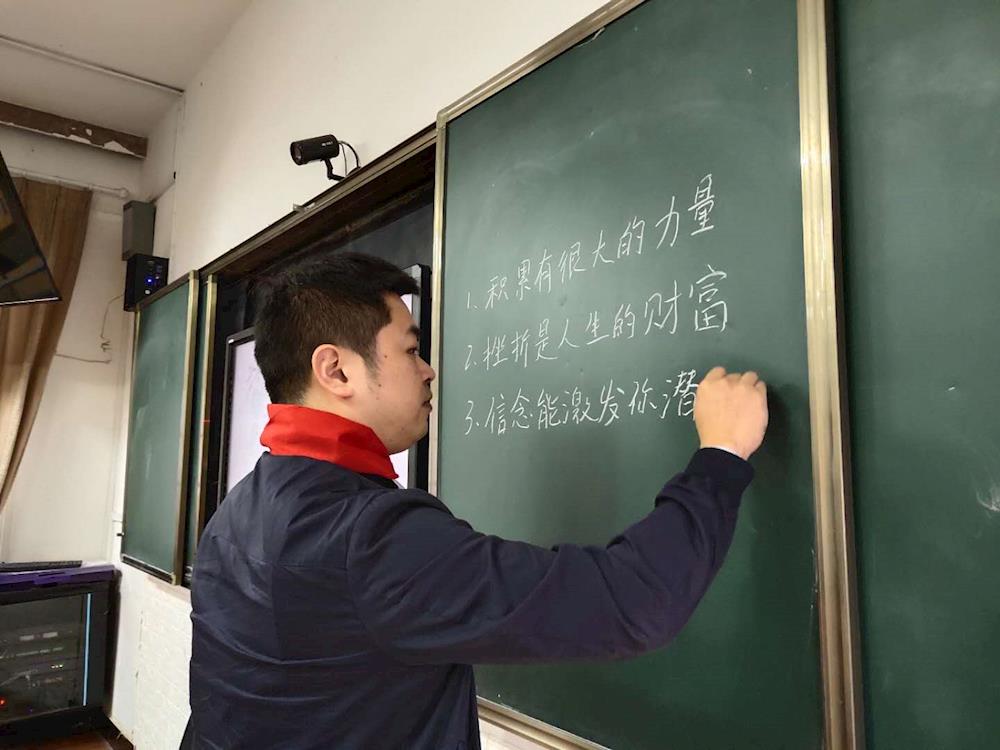 1. 积累有很大的力量
2. 挫折是人生的财富
3. 信念能激发你潜